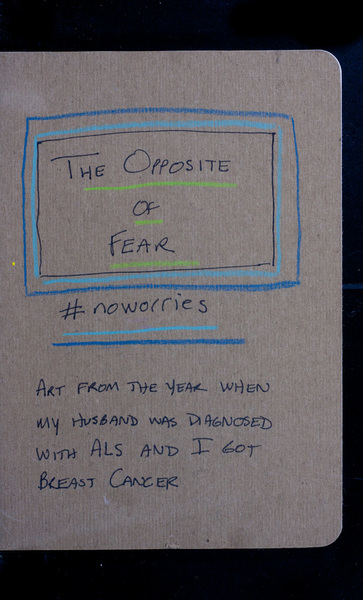 The Opposite
of
Fear
#noworries
Art from the year when
my husband was diagnosed
with ALS and I got
Breast Cancer